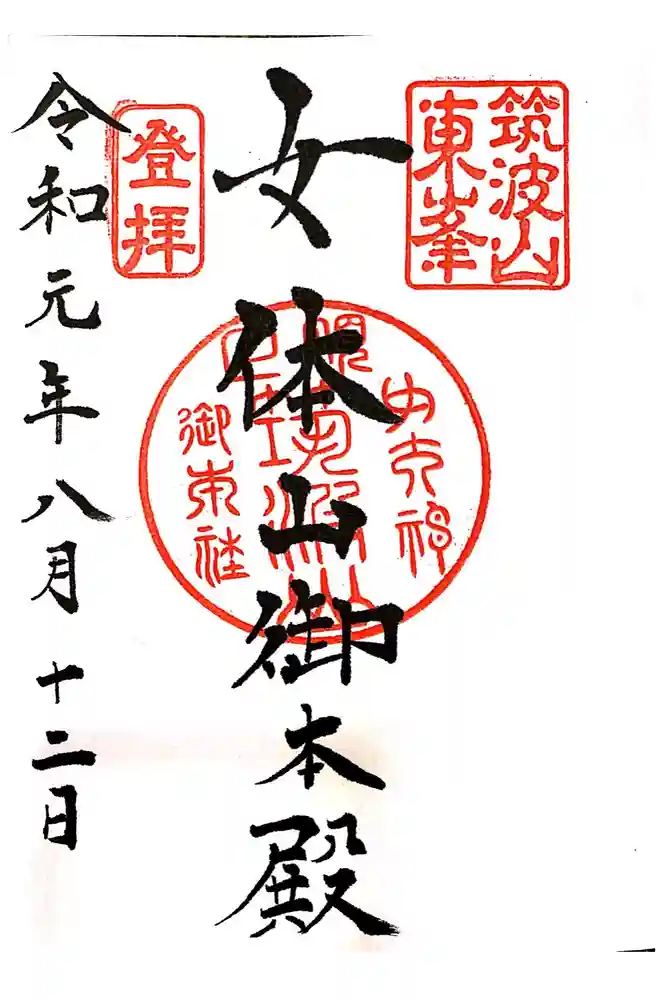 筑波山
東峯
女体山御本殿
登拝
令和元年八月十二日